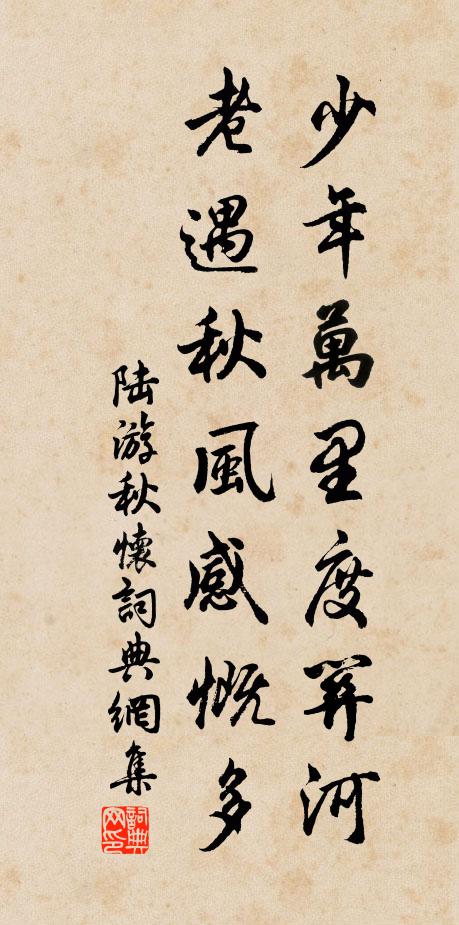 少年萬里度關河
老遇秋風感慨多
陆游秋懷詞典網集
詞典网印